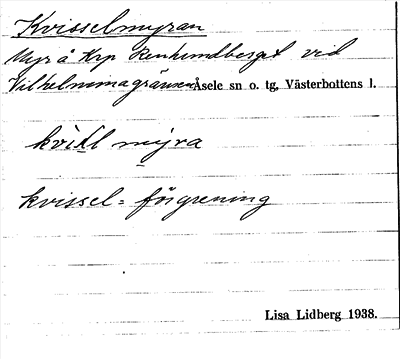 Kvisselmyran
Myr å Krp Renhundberget vid
Vilhelminagränsen Åsele sn o. tg, Västerbottens l.
myra
kvissel = förgrening
Lisa Lidberg 1938.